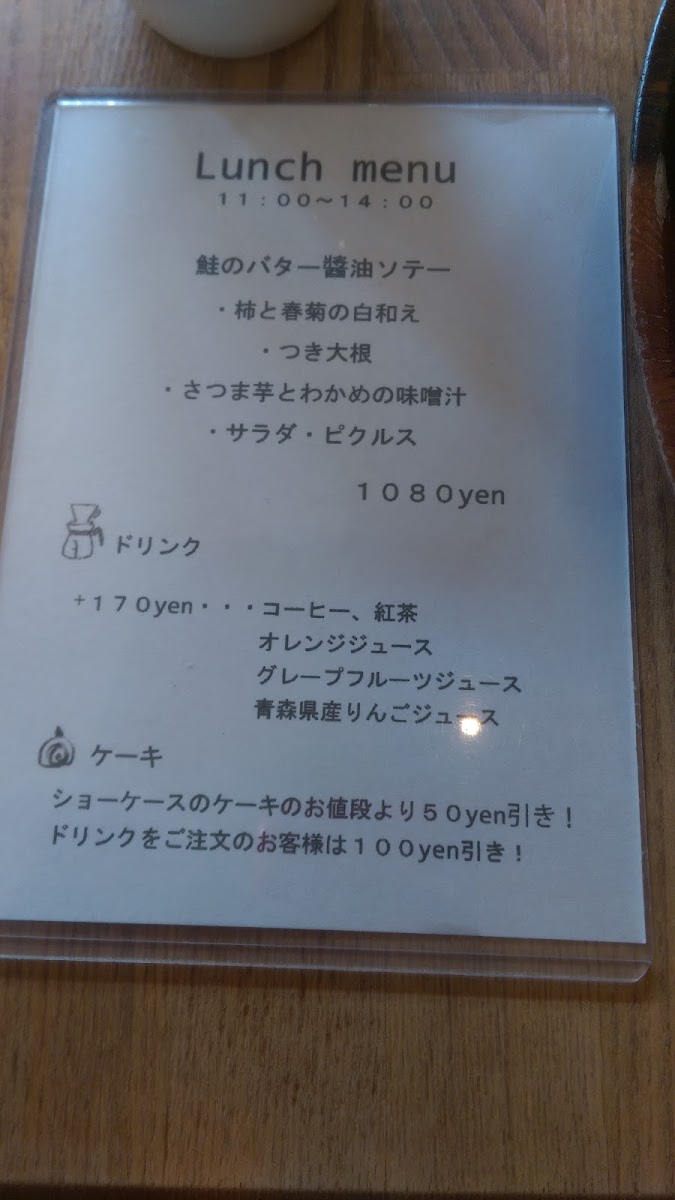 Lunch menu
11：00～14：00
鮭のバター醬油ソテー
・柿と春菊の白和え
・つき大根
・さつま芋とわかめの味噌汁
・サラダ・ピクルス
1080yen
ドリンク
+170yen・・・コーヒー、紅茶
オレンジジュース
グレープフルーツジュース
青森県産りんごジュース
ケーキ
ショーケースのケーキのお値段より50yen引き！
ドリンクをご注文のお客様は100yen引き！